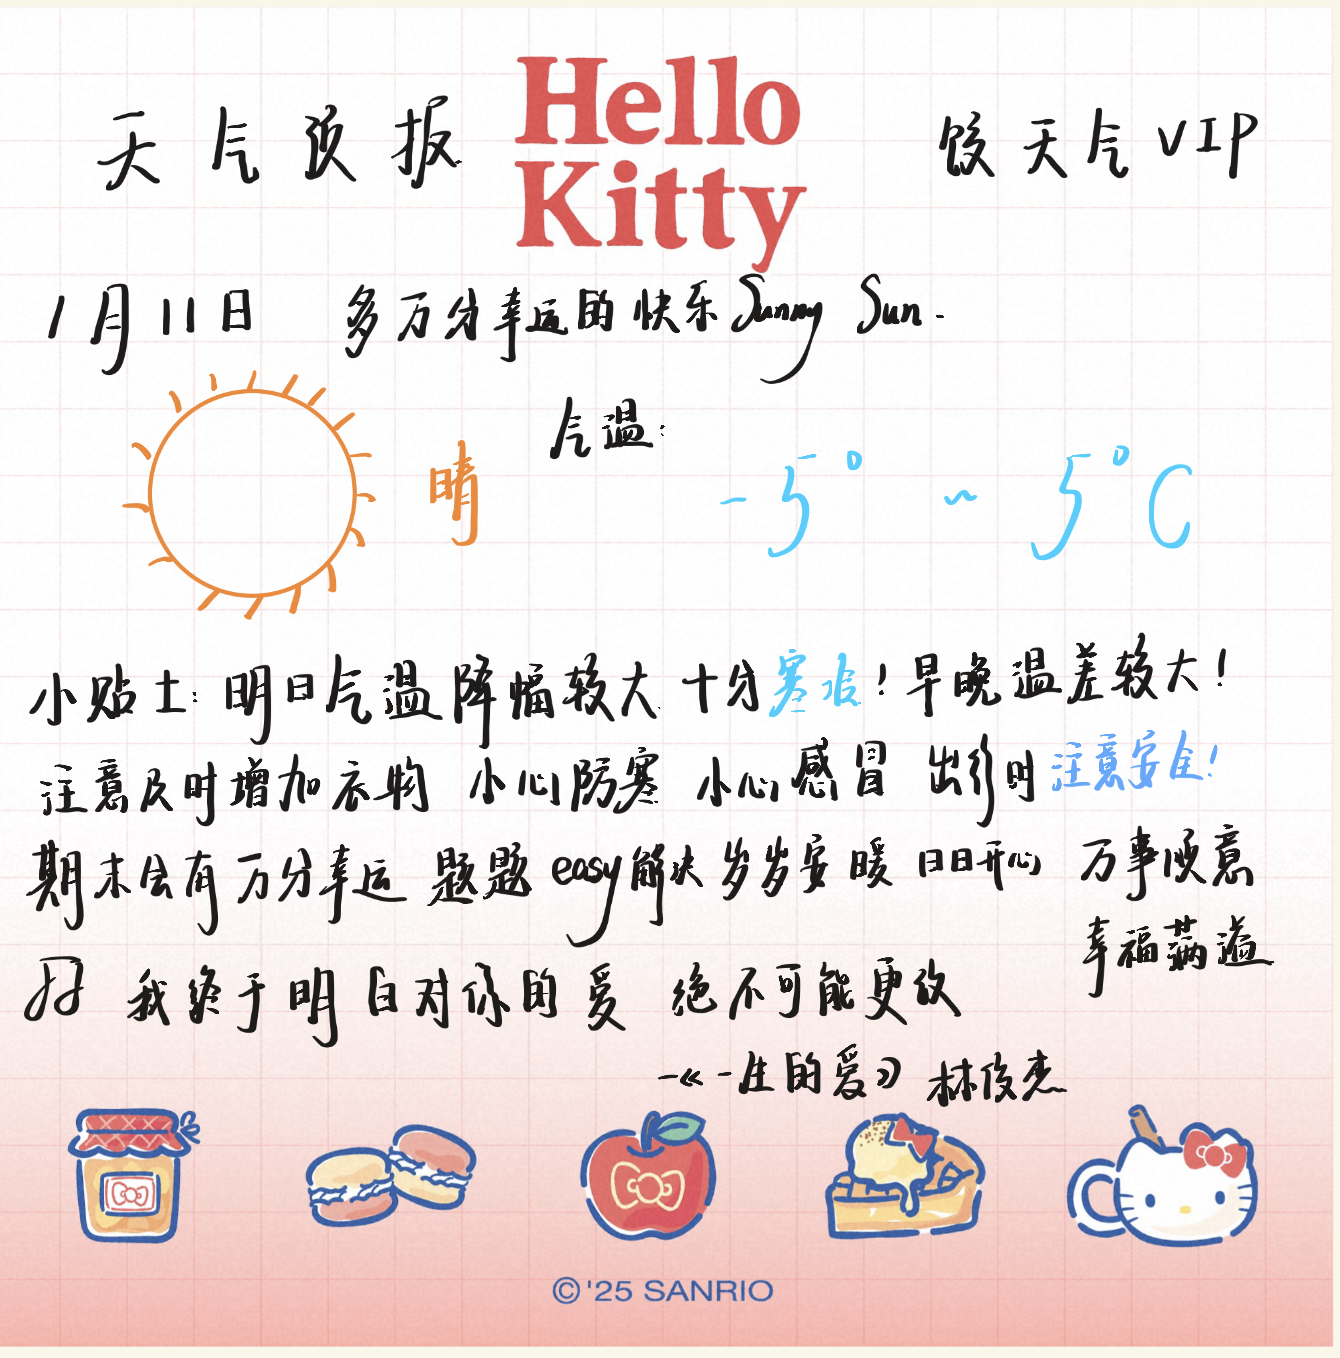 Hello
Kitty
天气预报
饺天气VIP
1月11日 多万分幸运的快乐Sunny Sun.
晴
气温:
-5° ~ 5°C
小贴士:明日气温降幅较大 十分寒冷!早晚温差较大!
注意及时增加衣物 小心防寒 小心感冒 出行时注意安全!
期末会有万分幸运 题题easy解决 岁岁安暖 日日开心 万事顺意
幸福满溢
我终于明白对你的爱 绝不可能更改
—《一生的爱》林俊杰
©'25 SANRIO